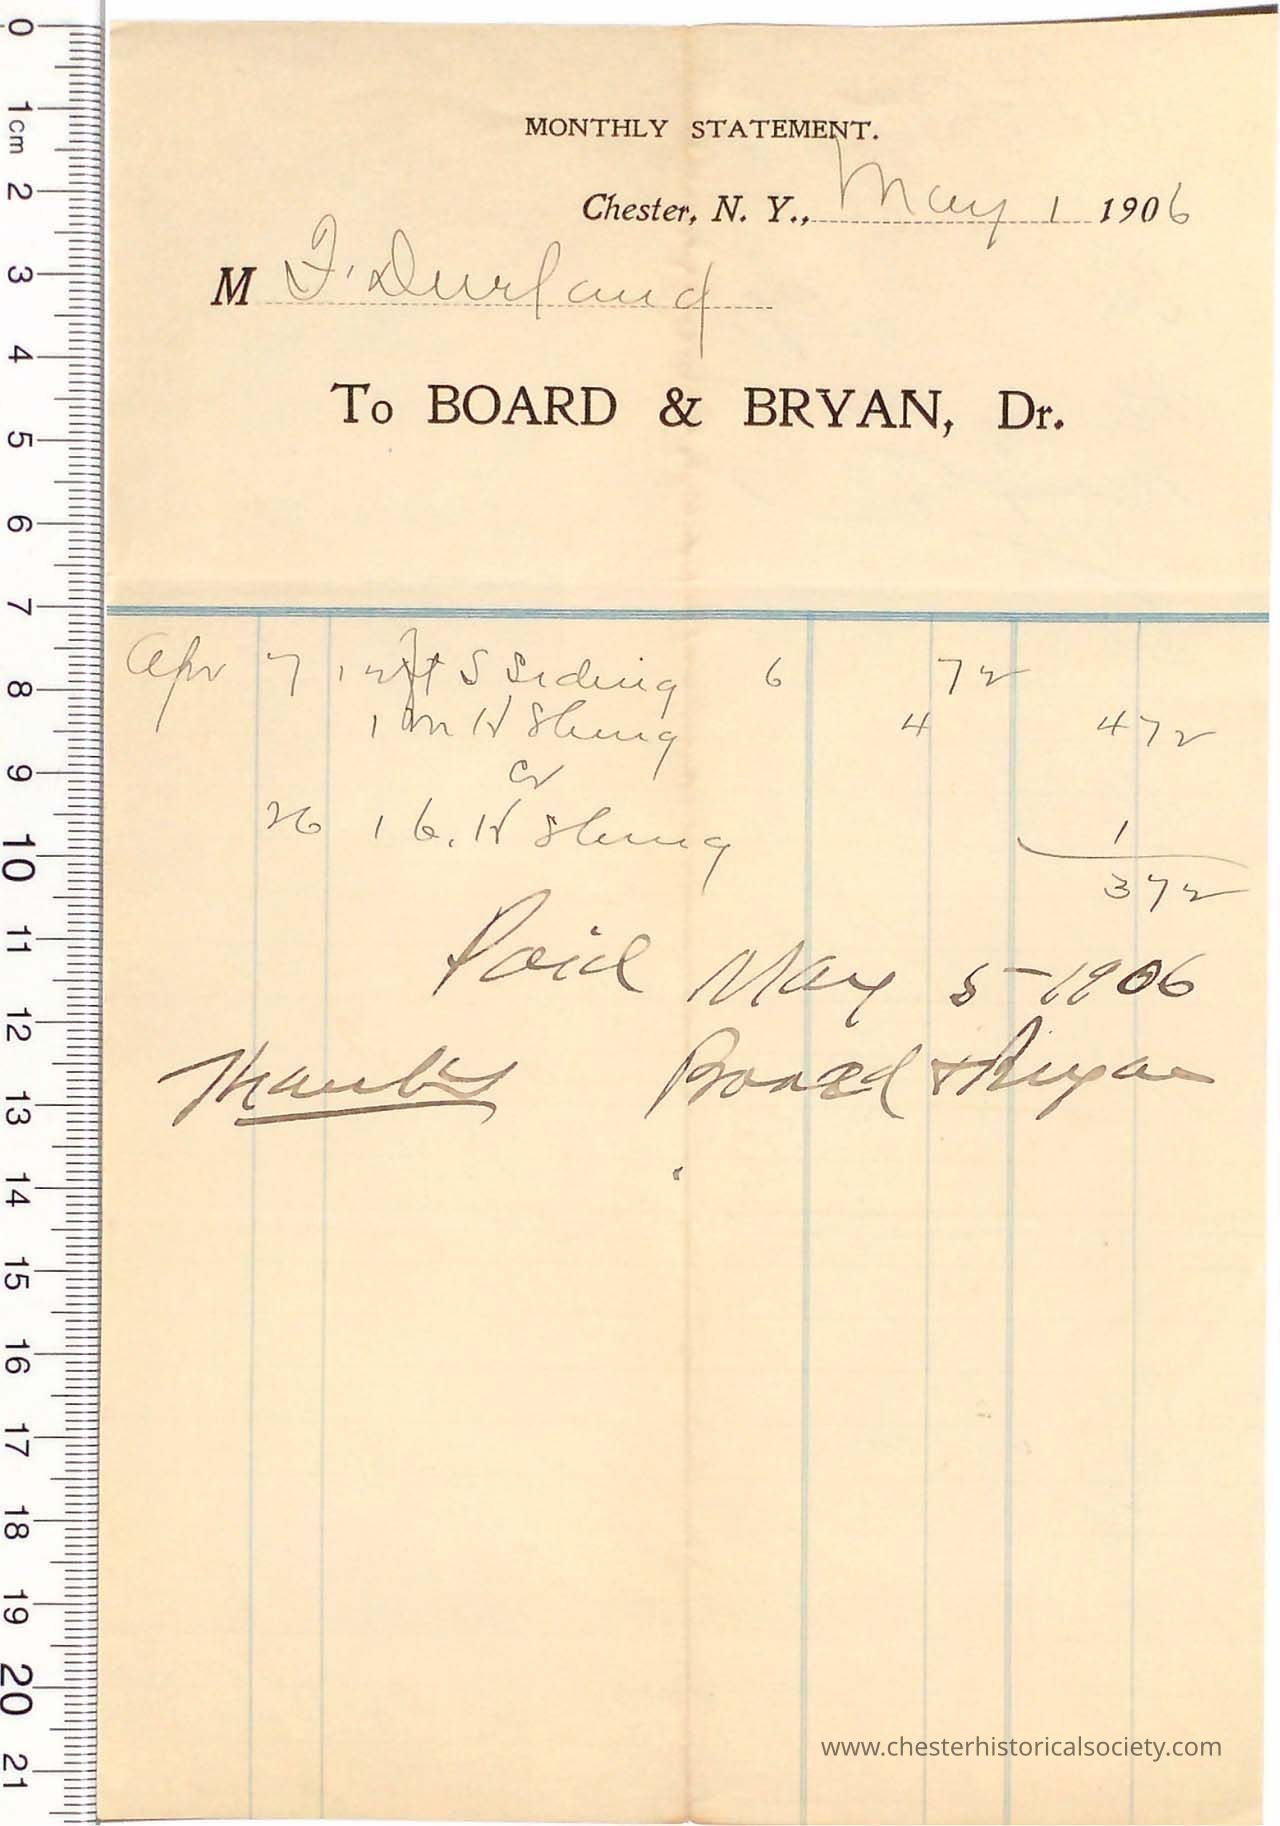 MONTHLY STATEMENT.
Chester, N. Y., May 1 1906
M F. Durland
To BOARD & BRYAN, Dr.
Apr 7 12 ft S Siding 6 72
1 M H Shing 4 4 72
Cr
26 1 b. H Shing 1
3 72
Paid May 5-1906
Thanks Board & Bryan
www.chesterhistoricalsociety.com
0
1cm
2
3
4
5
6
7
8
9
10
11
12
13
14
15
16
17
18
19
20
21